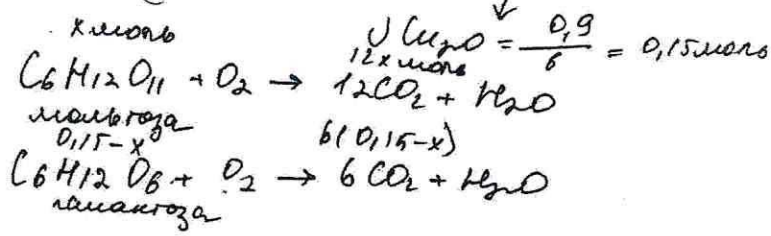 x моль
ν Cu₂O = 0,9/6 = 0,15 моль
12x моль
C6H12O11 + O2 → 12CO2 + H2O
мальтоза
0,15-x 6(0,15-x)
C6H12O6 + O2 → 6CO2 + H2O
галактоза